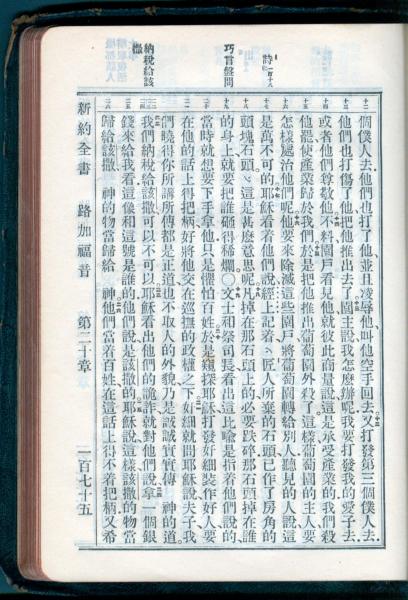 個僕人去、他們也打了他、並且凌辱他、叫他空手回去、又打發第三個僕人去、
他們也打傷了他、把他推出去了、園主說我怎麼辦呢、我要打發我的愛子去、
或者他們尊敬他、不料園戶看見他、就彼此商量說、這是承受產業的、我們殺
他罷、使產業歸於我們、於是把他推出葡萄園外殺了、這樣葡萄園的主人、要
怎樣處治他們呢、他要來除滅這些園戶、將葡萄園轉給別人、聽見的人說這
詩一百十八
是萬不可的、耶穌看着他們說、經上記着、匠人所棄的石頭、已作了房角的
頭塊石頭、這是甚麼意思呢、凡掉在那石頭上的、必要跌碎、那石頭掉在誰
巧言盤問
的身上、就要把誰砸得稀爛、〇文士和祭司長看出這比喻是指着他們說的、
當時就想要下手拿他、只是懼怕百姓、於是窺探耶穌、打發奸細裝作好人、要
在他的話上得把柄、好將他交在巡撫的政權之下、奸細就問耶穌說、夫子、我
們曉得你所講所傳都是正道、也不取人的外貌、乃是誠誠實實傳 神的道、
納稅給該撒
我們納稅給該撒、可以不可以、耶穌看出他們的詭詐、就對他們說、拿一個銀
錢來給我看、這像和這號是誰的、他們說、是該撒的、耶穌說、這樣該撒的物當
歸給該撒、 神的物當歸給 神、他們當着百姓在這話上得不着把柄、又希
新約全書 路加福音 第二十章 一百七十五